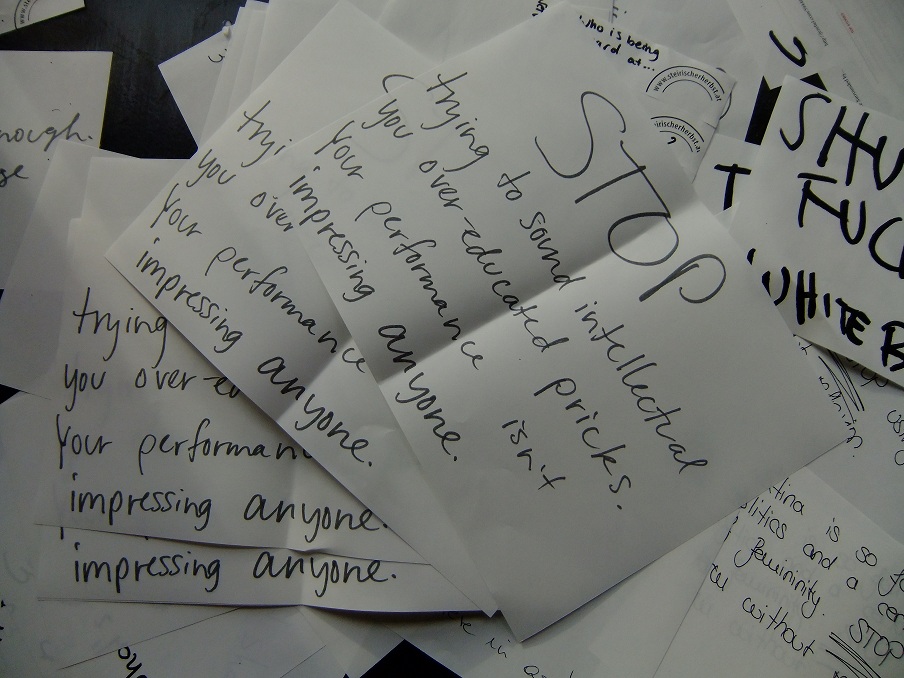 STOP
trying to sound intellectual
you over-educated pricks.
Your performance isn't
impressing anyone.
you over
Your performance
impressing anyone.
trying
you over-e
Your performan
impressing anyone.
impressing anyone.
who is being
ard at...
www.steirischerherbst.at
steirischerherbst.at
?
nough.
se
T
SHU
TUC
WHITE B
tina is so
litics and a
femininity.
without
STOP